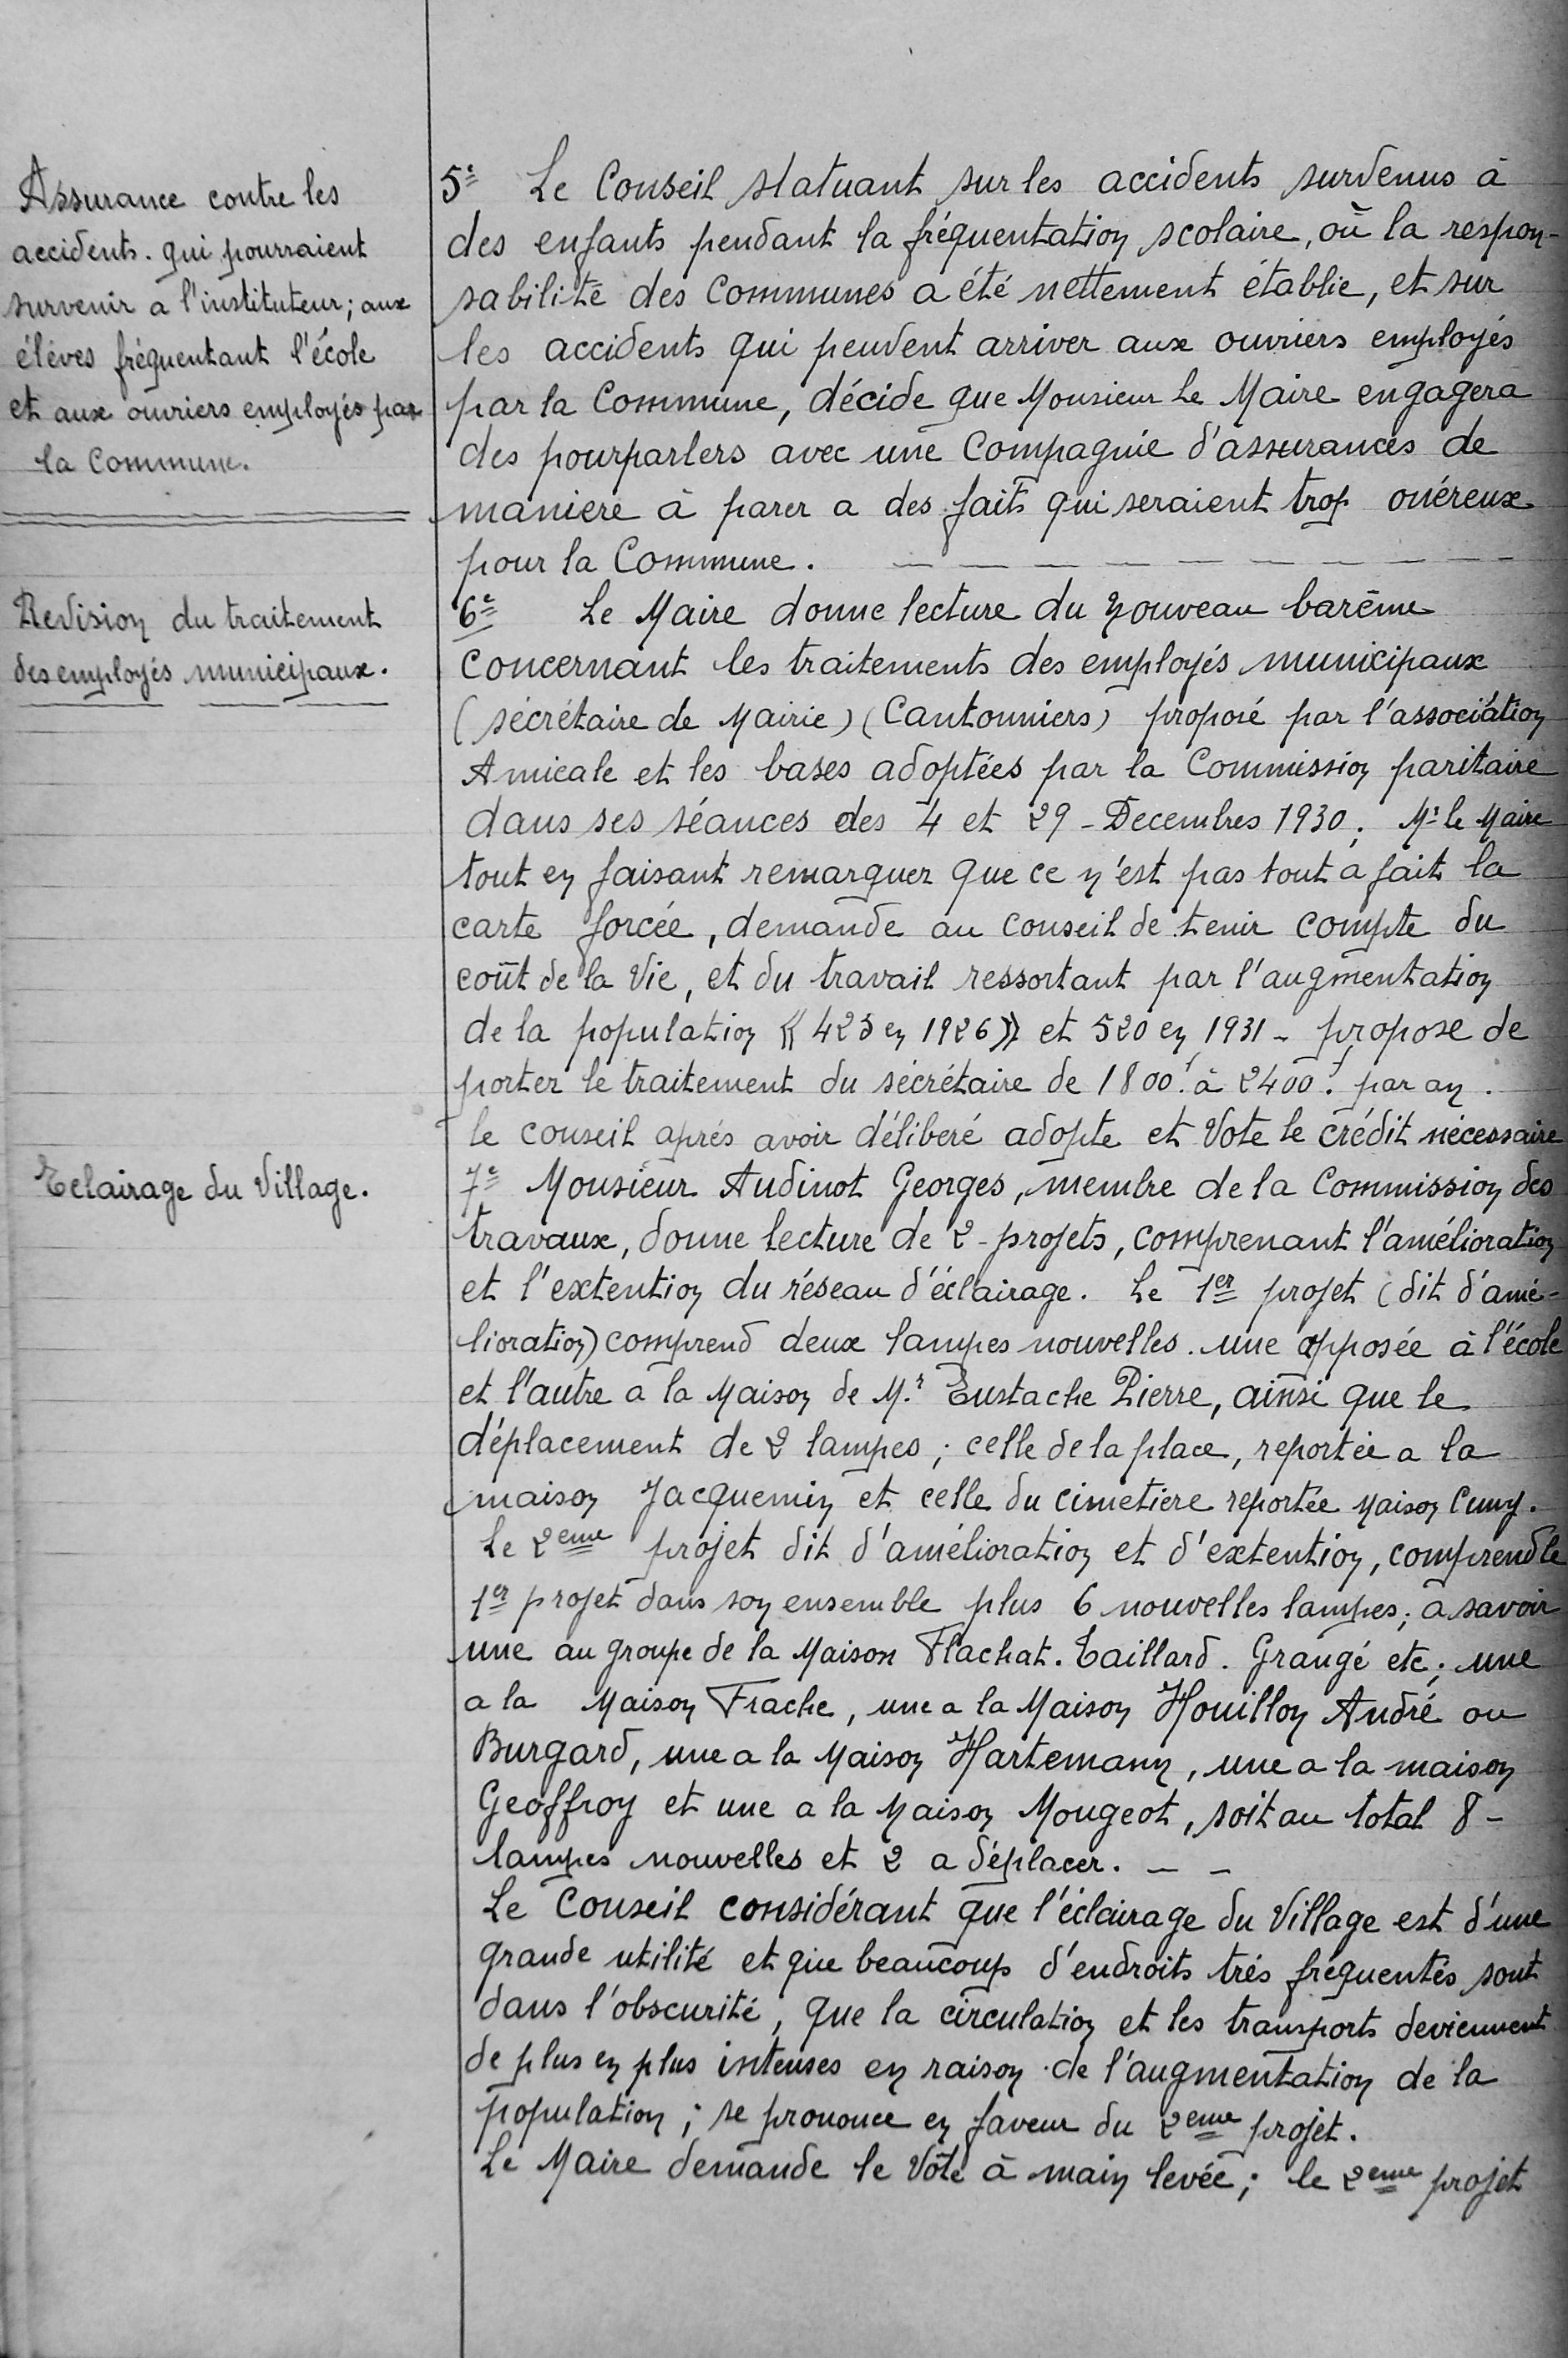 Assurance contre les
accidents. qui pourraient
survenir a l'instituteur; aux
élèves fréquentant l'école
et aux ouvriers employés par
la Commune.
Revision du traitement
des employés municipaux.
Eclairage du Village.
5e Le Conseil statuant sur les accidents survenus à
des enfants pendant la fréquentation scolaire, où la respon-
sabilité des Communes a été nettement établie, et sur
les accidents qui peuvent arriver aux ouvriers employés
par la Commune, décide que Monsieur Le Maire engagera
des pourparlers avec une Compagnie d'assurances de
maniere à parer a des faits qui seraient trop onéreux
pour la Commune. — — — — — — — — —
6e Le Maire donne lecture du nouveau barême
concernant les traitements des employés municipaux
(sécrétaire de Mairie) (Cantonniers) proposé par l'association
Amicale et les bases adoptées par la Commission paritaire
dans ses séances des 4 et 29 - Decembres 1930. Mr le Maire
tout en faisant remarquer que ce n'est pas tout à fait la
carte forcée, demande au conseil de tenir compte du
coût de la Vie, et du travail ressortant par l'augmentation
de la population « 423 en 1926 » et 520 en 1931 - propose de
porter le traitement du sécrétaire de 1800f. à 2400f. par an.
le conseil aprés avoir déliberé adopte et Vote le crédit nécessaire
7e Monsieur Audinot Georges, membre de la Commission des
travaux, donne lecture de 2 - projets, comprenant l'amélioration
et l'extention du réseau d'éclairage. Le 1er projet (dit d'amé-
lioration) comprend deux lampes nouvelles. une apposée à l'école
et l'autre a la Maison de Mr. Eustache Pierre, ainsi que le
déplacement de 2 lampes; celle de la place, reportée a la
maison Jacquemin et celle du cimetiere reportée Maison Cuny.
Le 2eme projet dit d'amélioration et d'extention, comprend le
1er projet dans son ensemble plus 6 nouvelles lampes; a savoir
une au groupe de la Maison Flachat. Taillard. Grangé etc; une
a la Maison Frache, une a la Maison Houillon André ou
Burgard, une a la Maison Hartemann, une a la maison
Geoffroy et une a la Maison Mougeot, soit au total 8 -
lampes nouvelles et 2 a déplacer. — —
Le Conseil considérant que l'éclairage du Village est d'une
grande utilité et que beaucoup d'endroits trés fréquentés sont
dans l'obscurité, que la circulation et les transports deviennent
de plus en plus intenses en raison de l'augmentation de la
population; se prononce en faveur du 2eme projet.
Le Maire demande le Vôte à main levée; le 2eme projet